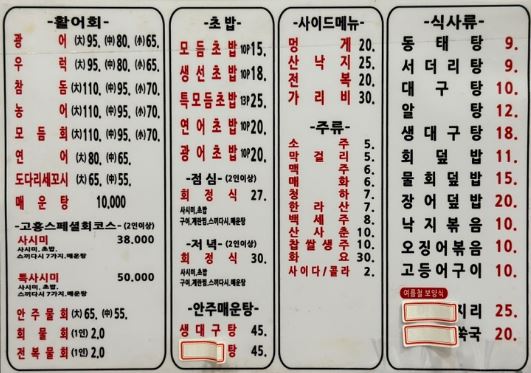 -활어회-
광 어 (大)95, (中)80, (小)65.
우 럭 (大)95, (中)80, (小)65.
참 돔 (大)110, (中)95, (小)70.
농 어 (大)110, (中)95, (小)70.
모 듬 회 (大)110, (中)95, (小)70.
연 어 (大)80, (中)65.
도다리세꼬시 (大)65, (中)55.
매 운 탕 10,000
-고흥스페셜회코스- (2인이상)
사시미 38,000
사시미, 초밥,
스끼다시 7가지, 매운탕
특사시미 50,000
사시미, 초밥,
스끼다시 7가지, 매운탕
안 주 물 회 (大) 65, (中) 55.
회 물 회 (1인) 2,0
전 복 물 회 (1인) 2,0
-초 밥-
모 듬 초 밥 10P 15.
생 선 초 밥 10P 18.
특모듬초밥 13P 25.
연 어 초 밥 10P 20.
광 어 초 밥 10P 20.
-점 심- (2인이상)
회 정 식 27.
사시미, 초밥
구이, 계란찜, 스끼다시, 매운탕
-저 녁- (2인이상)
회 정 식 30.
사시미, 초밥
구이, 계란찜, 스끼다시, 매운탕
-안주매운탕-
생 대 구 탕 45.
탕 45.
-사이드메뉴-
멍 게 20.
산 낙 지 25.
전 복 20.
가 리 비 30.
-주류-
소 주 5.
막 걸 리 5.
맥 주 6.
매 화 6.
청 하 7.
한 라 산 7.
백 세 주 8.
산 사 춘 10.
찹 쌀 생 주 10.
화 요 30.
사 이 다 / 콜 라 2.
-식사류-
동 태 탕 9.
서 더 리 탕 9.
대 구 탕 10.
알 탕 12.
생 대 구 탕 18.
회 덮 밥 11.
물 회 덮 밥 15.
장 어 덮 밥 20.
낙 지 볶 음 10.
오 징 어 볶 음 10.
고 등 어 구 이 10.
여름철 보양식
지리 25.
쑥국 20.